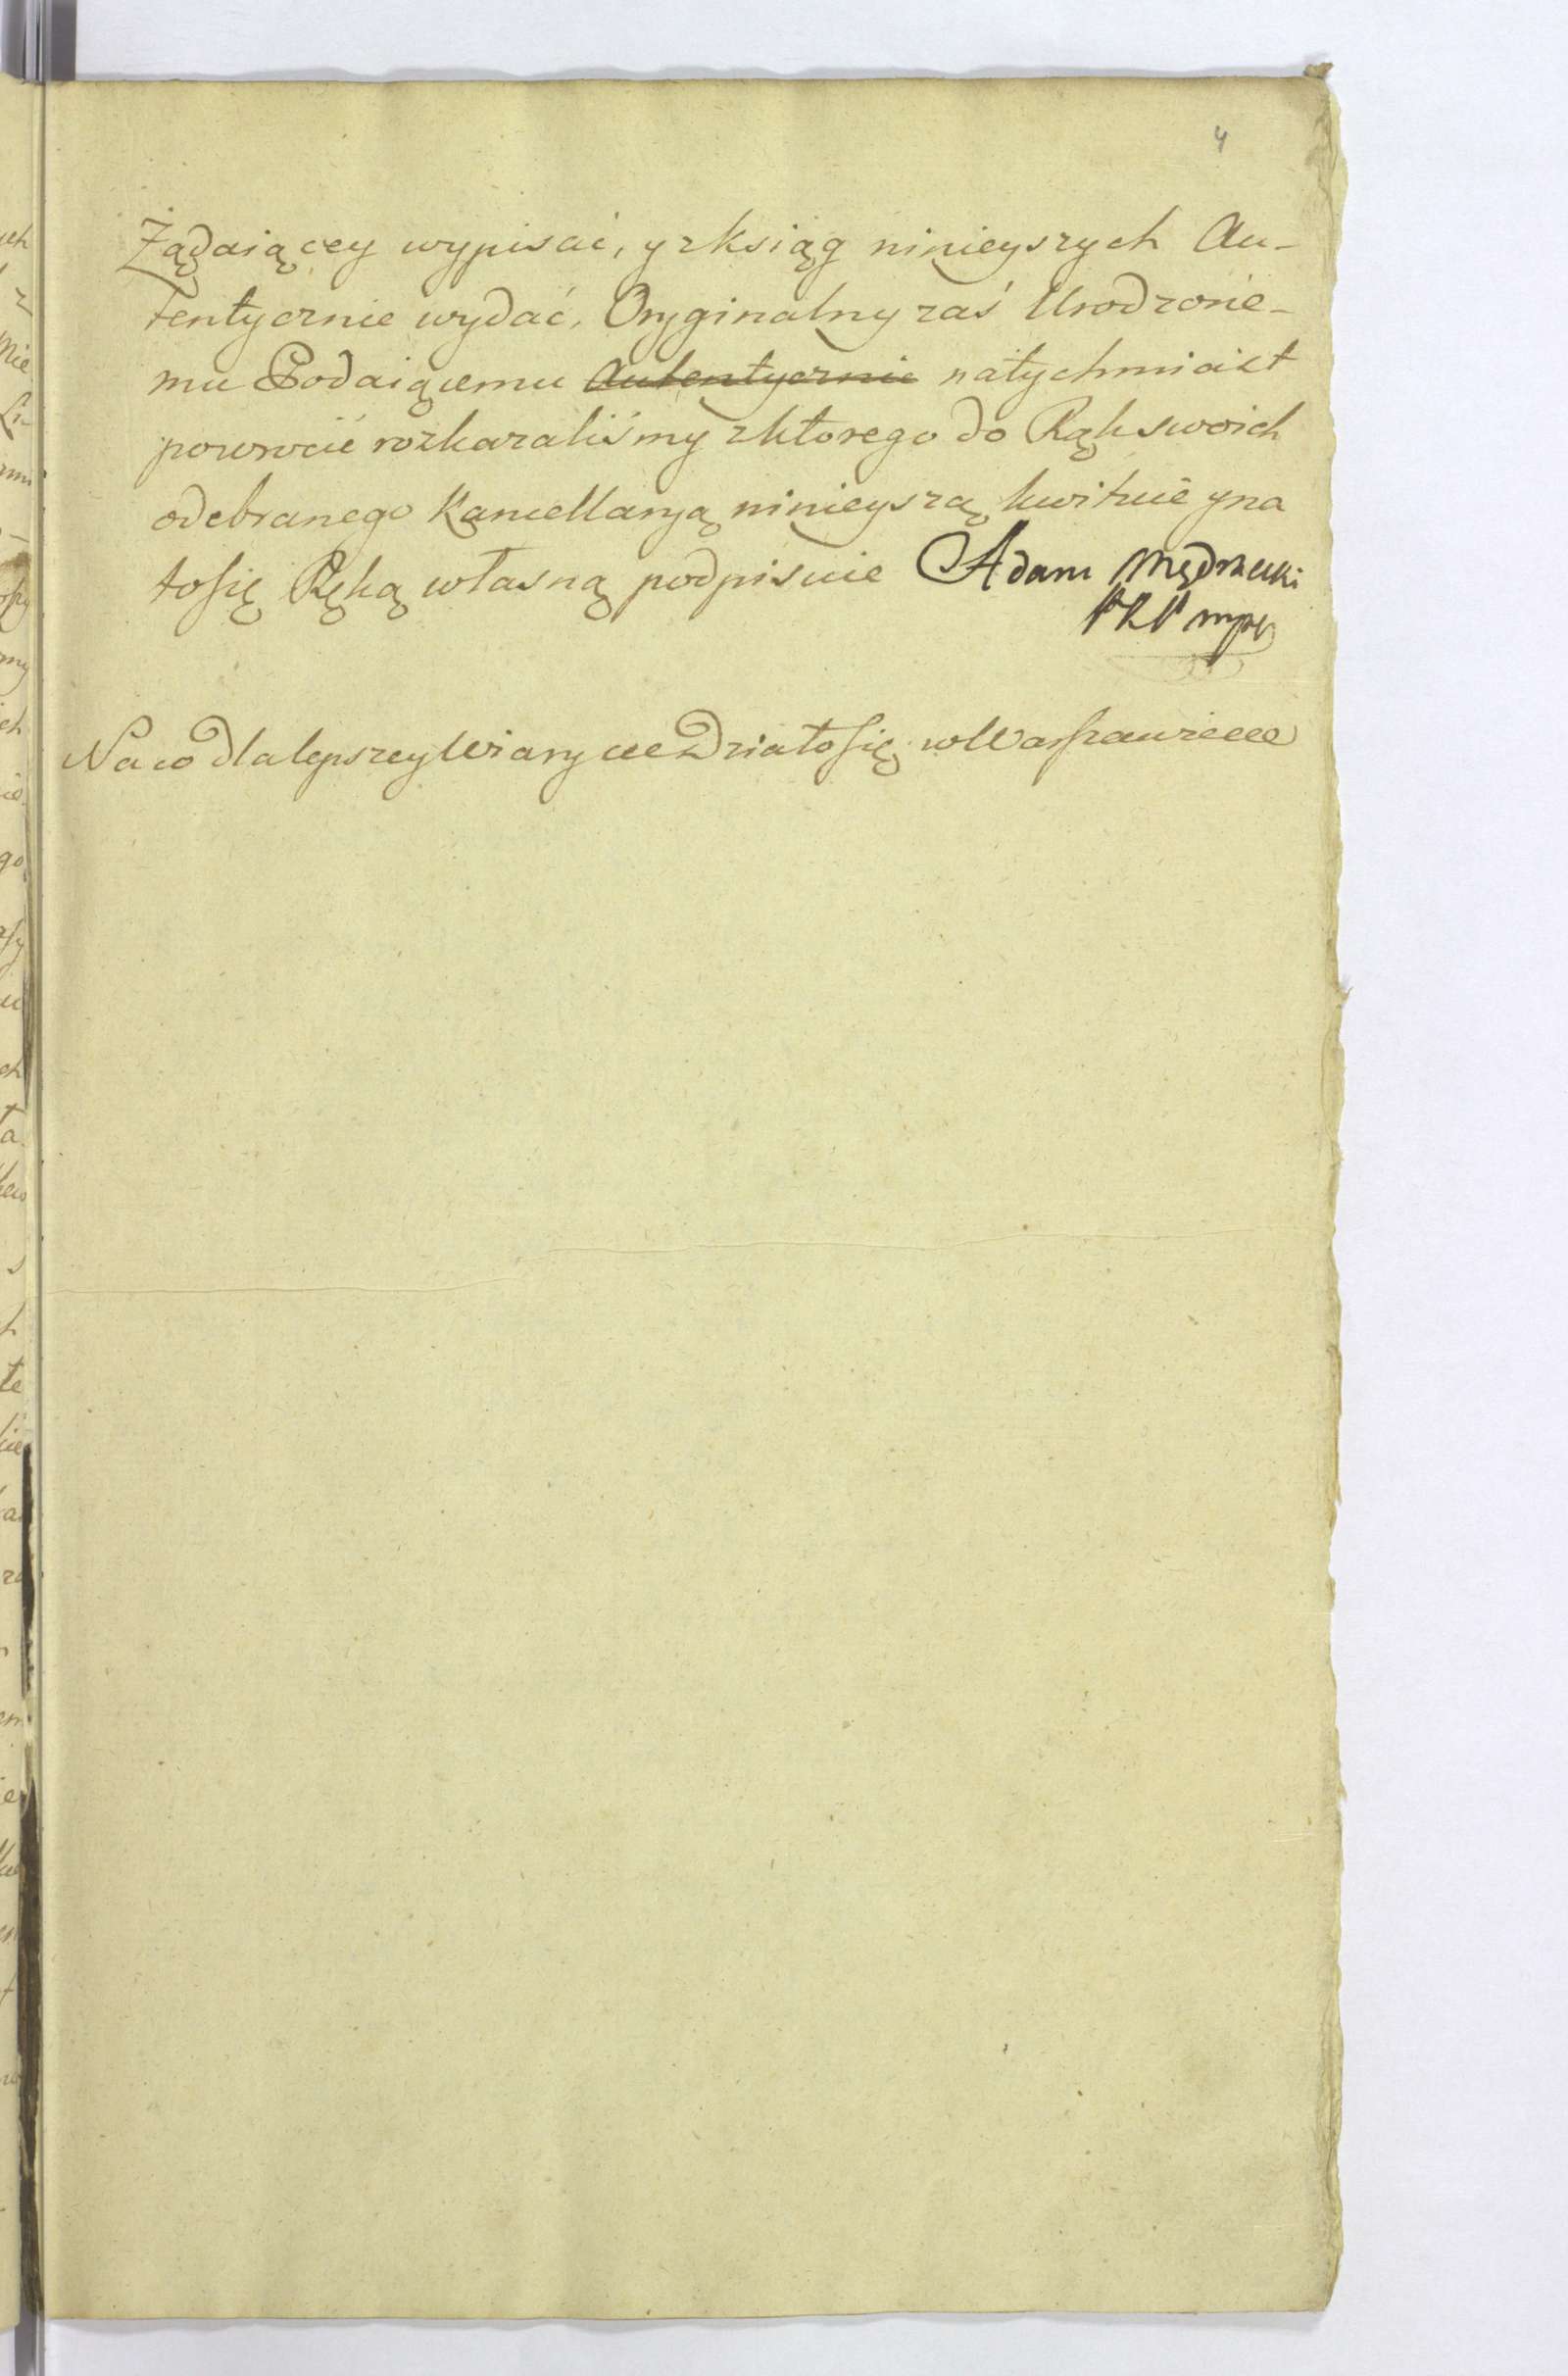 4
Żądaiącey wypisać, y zksiąg ninieyszych Au-
tentycznie wydać, Oryginalny zaś Urodzone-
mu Podaiącemu Autentycznie natychmiast
powrócić rozkazaliśmy zktorego do Rąk swoich
odebranego Kancellaryą ninieyszą kwituie yna
tosię Ręką własną podpisuie Adam Mędrzecki
mpp
Na co dla lepszey Wiary etc Działosię w Warszawie etc